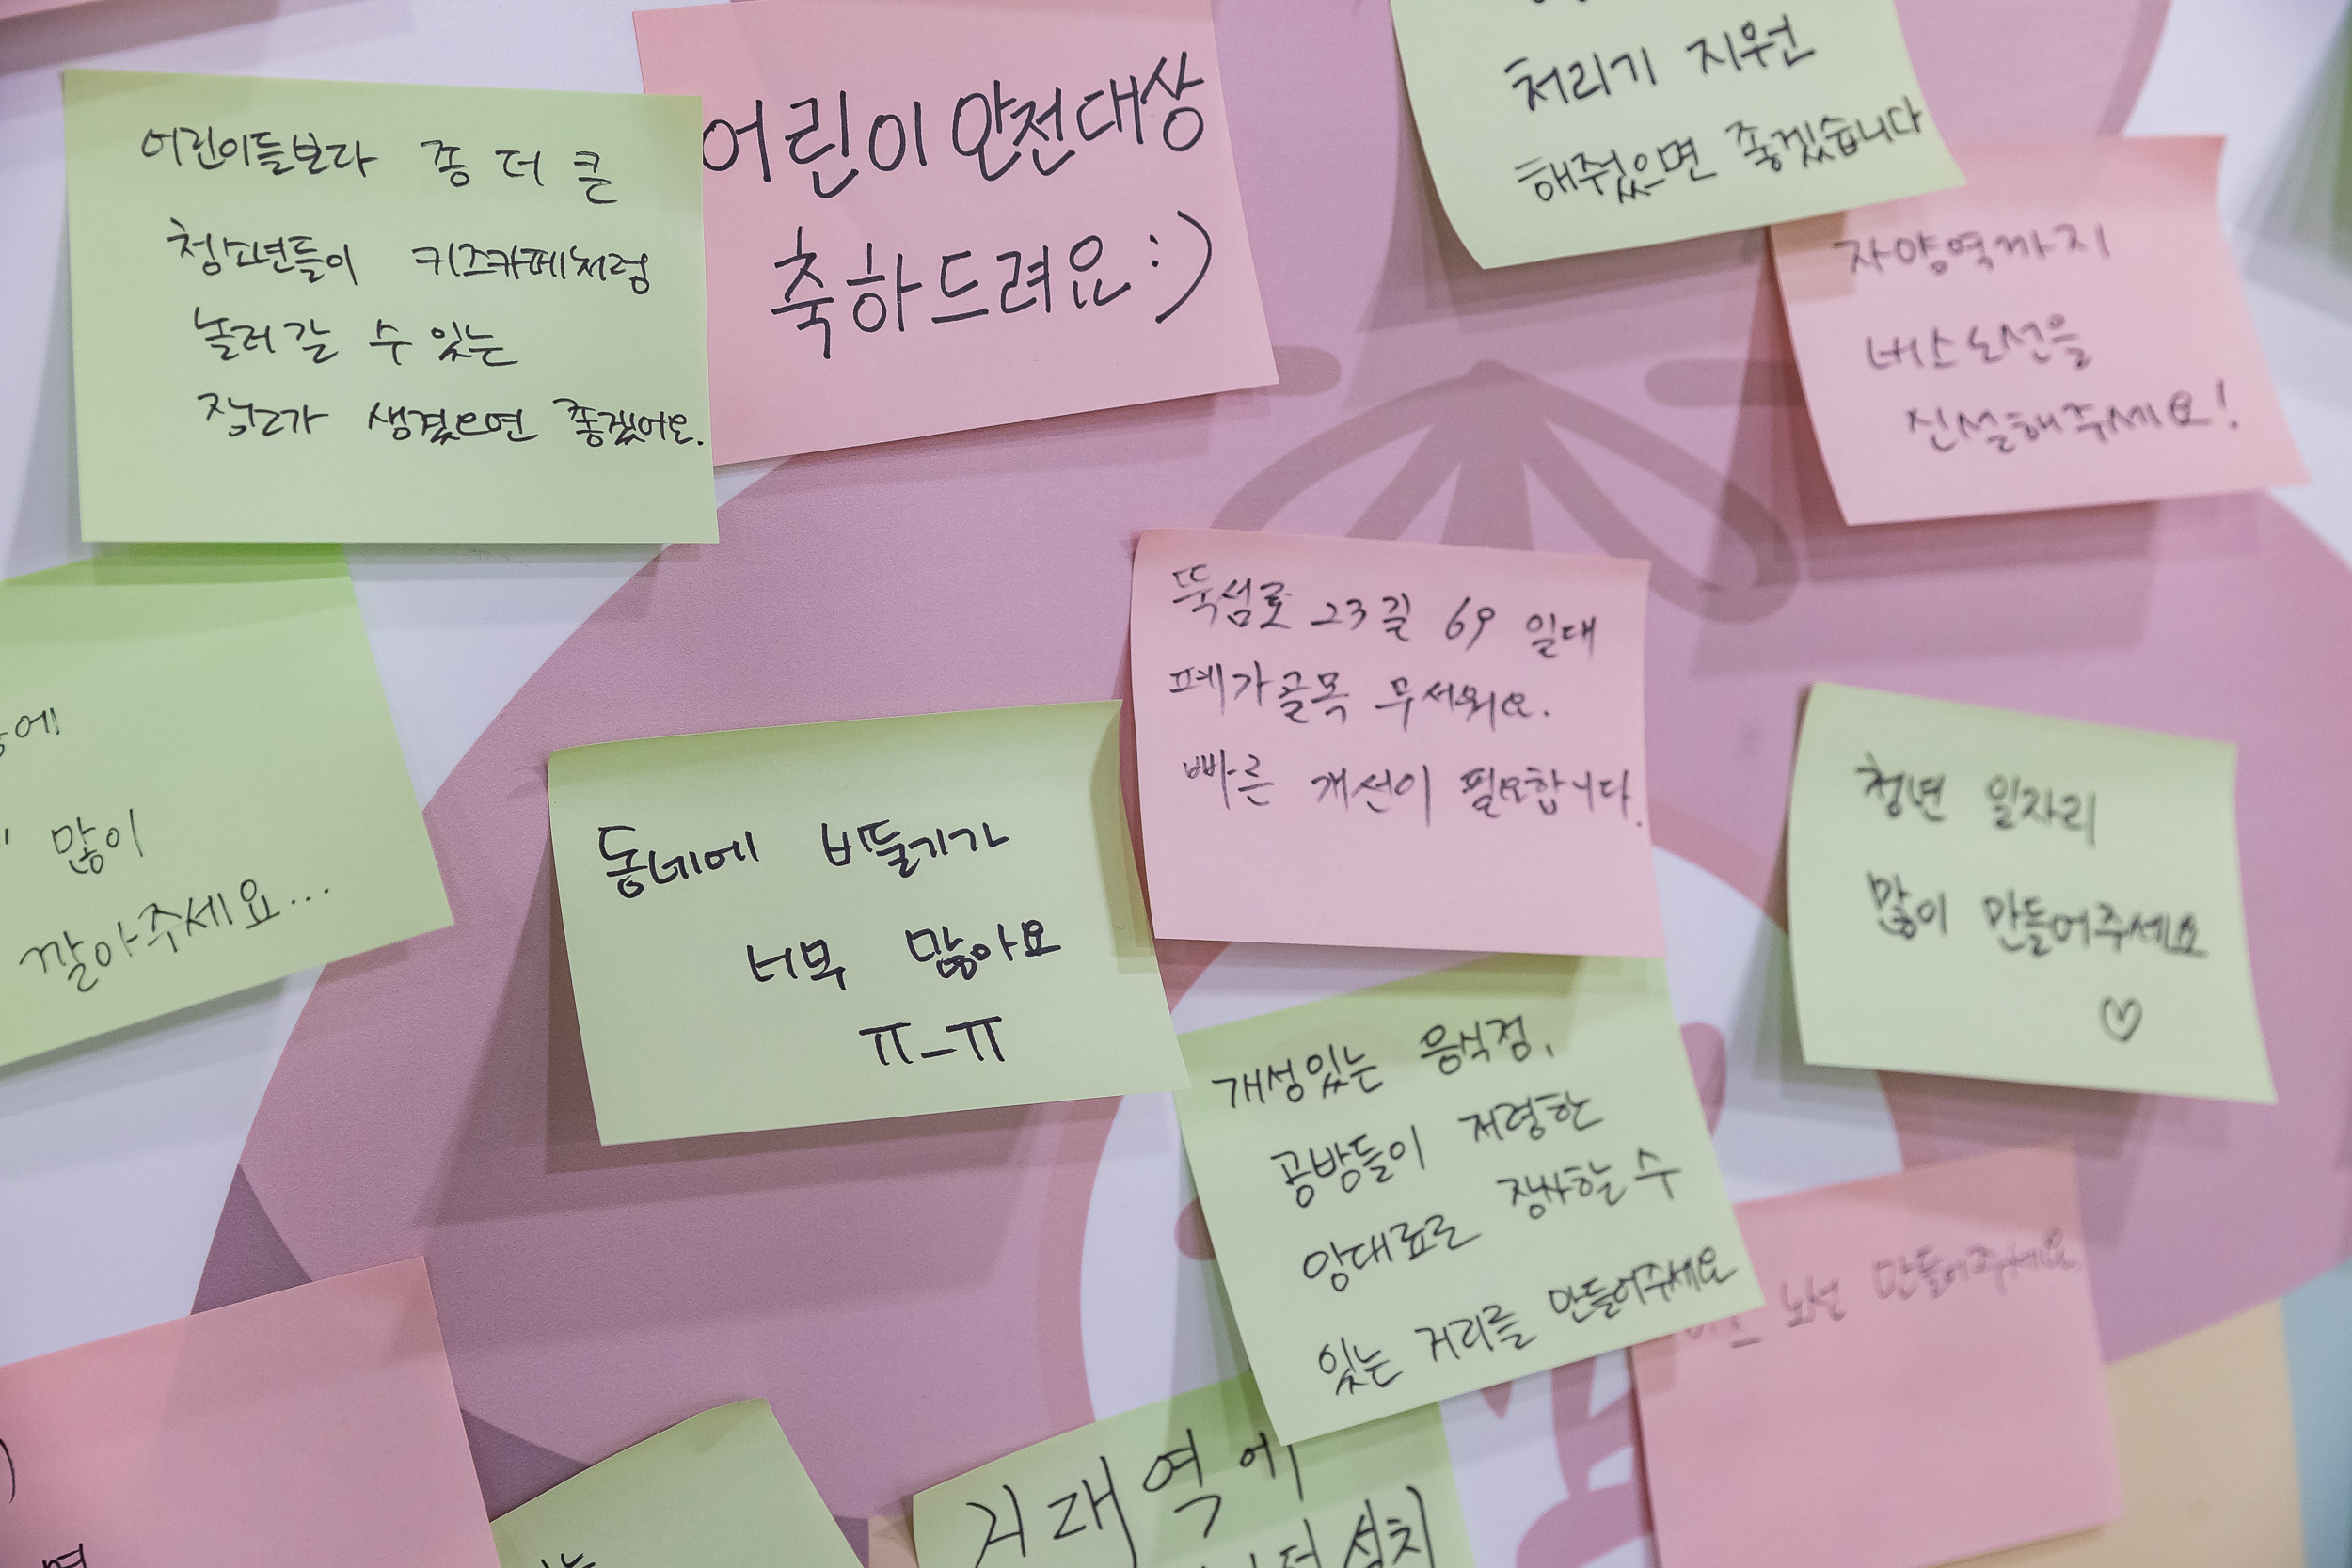 어린이들보다 좀 더 큰
청소년들이 키즈카페처럼
놀러갈 수 있는
장소가 생겼으면 좋겠어요.
어린이 안전대상
축하드려요 :)
처리기 지원
해줬으면 좋겠습니다
자양역까지
버스노선을
신설해주세요!
뚝섬로 23길 69 일대
폐가골목 무서워요.
빠른 개선이 필요합니다.
많이
깔아주세요...
동네에 비둘기가
너무 많아요
ㅠ_ㅠ
청년 일자리
많이 만들어주세요
♡
개성있는 음식점,
공방들이 저렴한
임대료로 장사할 수
있는 거리를 만들어주세요
노선 만들어주세요
역에
설치